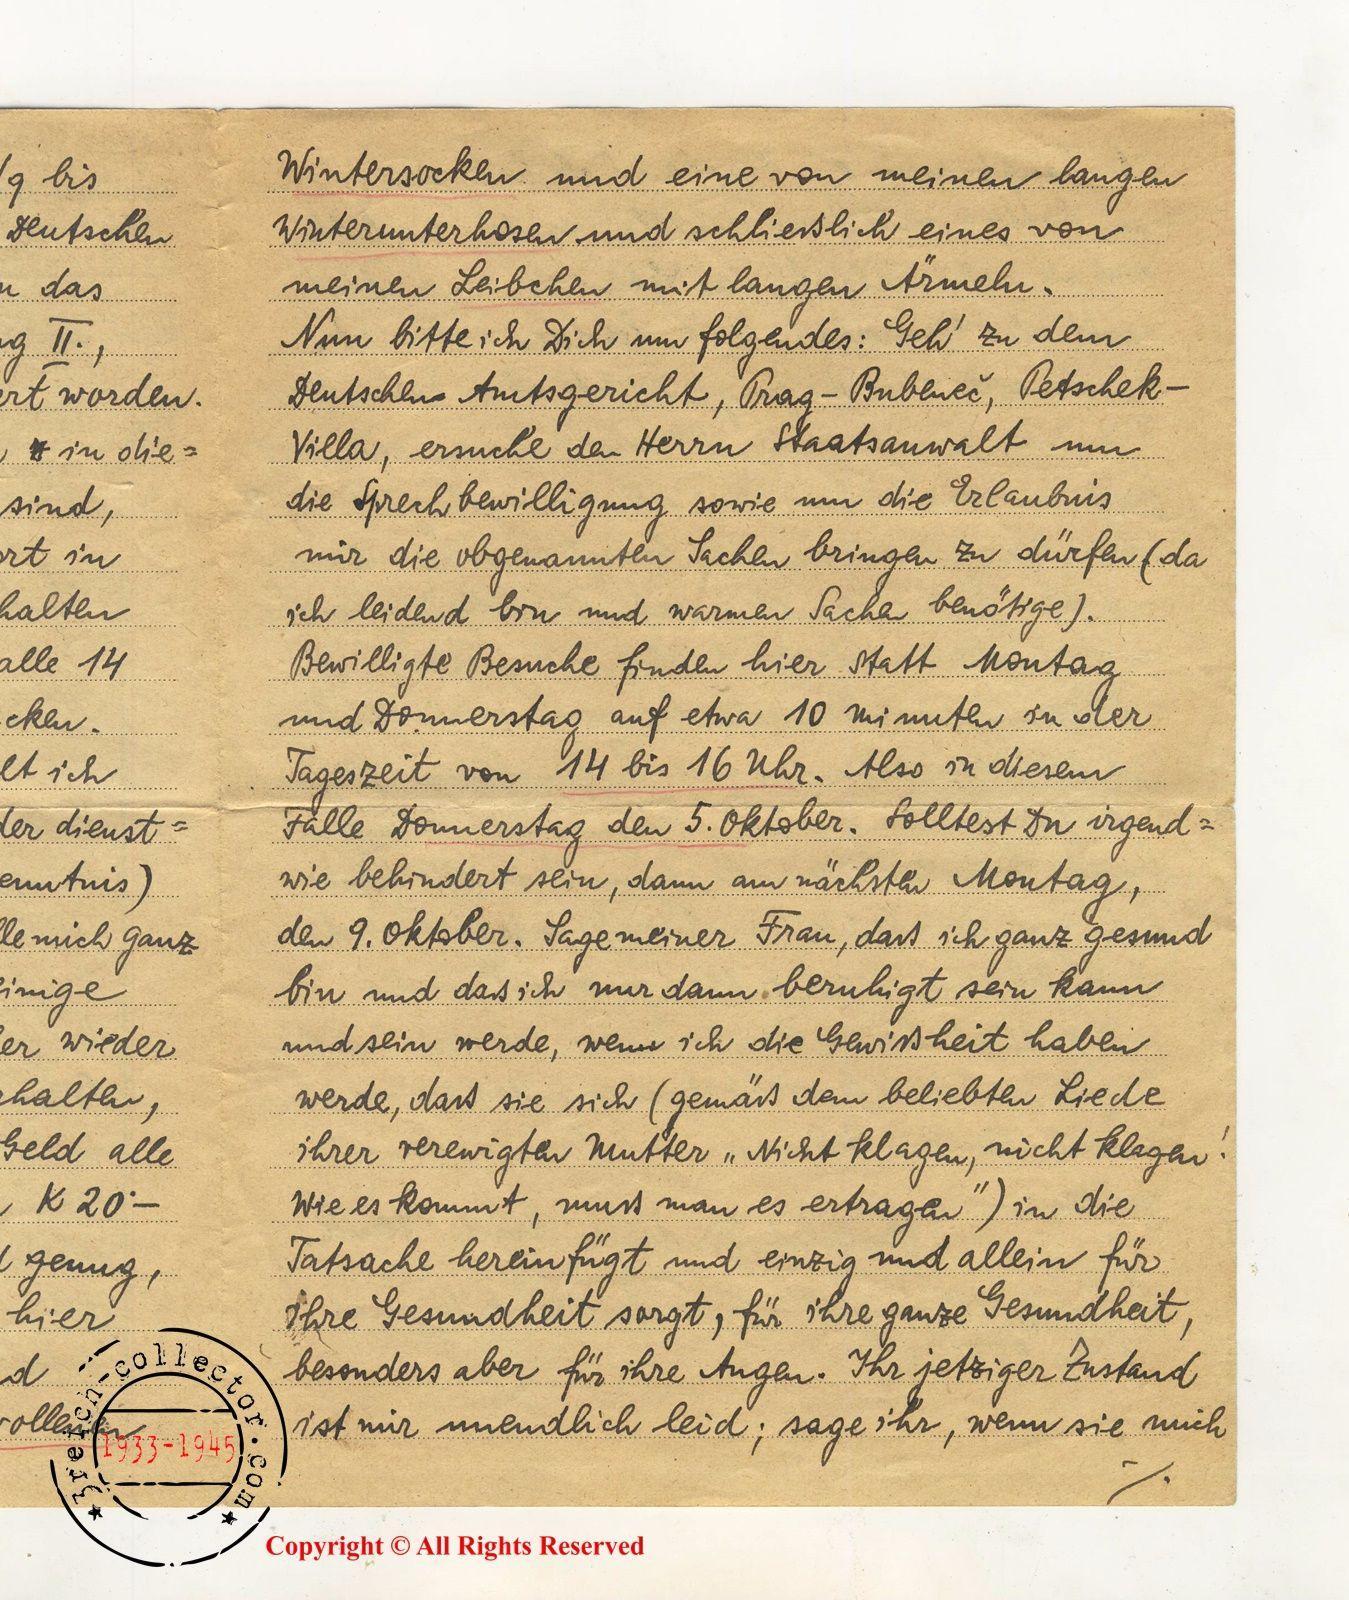 /9 bis
Deutschen
das
II.,
ert worden.
z in die=
sind,
ort in
halten
alle 14
cken.
lt ich
der dienst=
enntnis)
lle mich ganz
einige
er wieder
rhalten,
Geld alle
K 20.-
genug,
hier
d
wollenen
Wintersocken und eine von meinen langen
Winterunterhosen und schliesslich eines von
meinen Leibchen mit langen Ärmeln.
Nun bitte ich Dich um folgendes: Geh' zu dem
Deutschen Amtsgericht, Prag-Bubeneč, Petschek-
Villa, ersuche den Herrn Staatsanwalt um
die Sprechbewilligung sowie um die Erlaubnis
mir die obgenannten Sachen bringen zu dürfen (da
ich leidend bin und warmen Sachen benötige).
Bewilligte Besuche finden hier statt Montag
und Donnerstag auf etwa 10 Minuten in der
Tageszeit von 14 bis 16 Uhr. Also in diesem
Falle Donnerstag den 5. Oktober. Solltest Du irgend=
wie behindert sein, dann am nächsten Montag,
den 9. Oktober. Sage meiner Frau, dass ich ganz gesund
bin und dass ich nur dann beruhigt sein kann
und sein werde, wenn ich die Gewissheit haben
werde, dass sie sich (gemäss dem beliebten Liede
ihrer verewigten Mutter „Nicht klagen, nicht klagen!
Wie es kommt, muss man es ertragen") in die
Tatsache hereinfügt und einzig und allein für
ihre Gesundheit sorgt, für ihre ganze Gesundheit,
besonders aber für ihre Augen. Ihr jetziger Zustand
ist mir unendlich leid; sage ihr, wenn sie mich
./.
3reich-collector.com
1933-1945
Copyright © All Rights Reserved